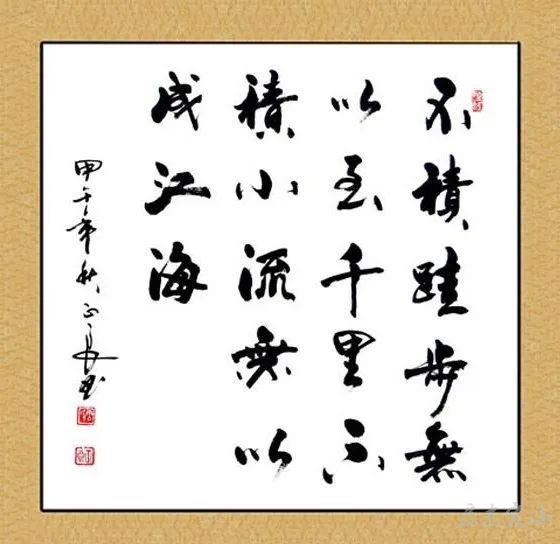 不積跬步無
以至千里不
積小流無以
成江海
甲午年秋